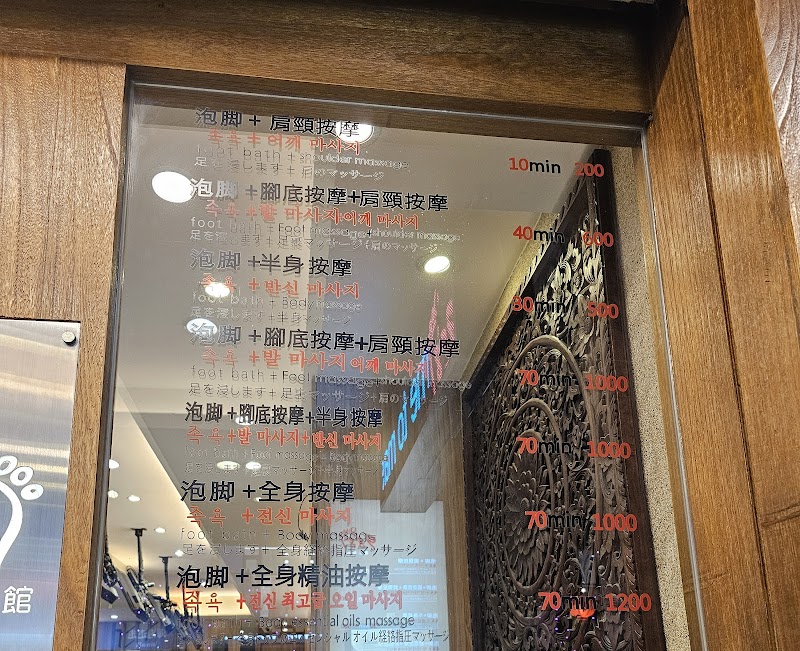 泡脚 + 肩頸按摩
족욕 + 어깨 마사지
foot bath + shoulder massage
足を浸します + 肩のマッサージ
10min 200
泡脚 + 腳底按摩+肩頸按摩
족욕 +발 마사지+어깨 마사지
foot bath + Foot massage+shoulder massage
足を浸します + 足裏マッサージ+肩のマッサージ
40min 600
泡脚 +半身按摩
족욕 + 반신 마사지
foot bath + Body massage
足を浸します + 半身マッサージ
30min 500
泡脚 +腳底按摩+肩頸按摩
족욕 +발 마사지 어깨 마사지
foot bath + Foot massage+shoulder massage
足を浸します + 足裏マッサージ+肩のマッサージ
70min 1000
泡脚 +腳底按摩+半身按摩
족욕 +발 마사지+반신 마사지
70min 1000
泡脚 +全身按摩
족욕 +전신 마사지
foot bath + Body massage
足を浸します + 全身経絡指圧マッサージ
70min 1000
泡脚 +全身精油按摩
족욕 +전신 최고급 오일 마사지
essential oils massage
オイル経絡指圧マッサージ
70min 1200
館